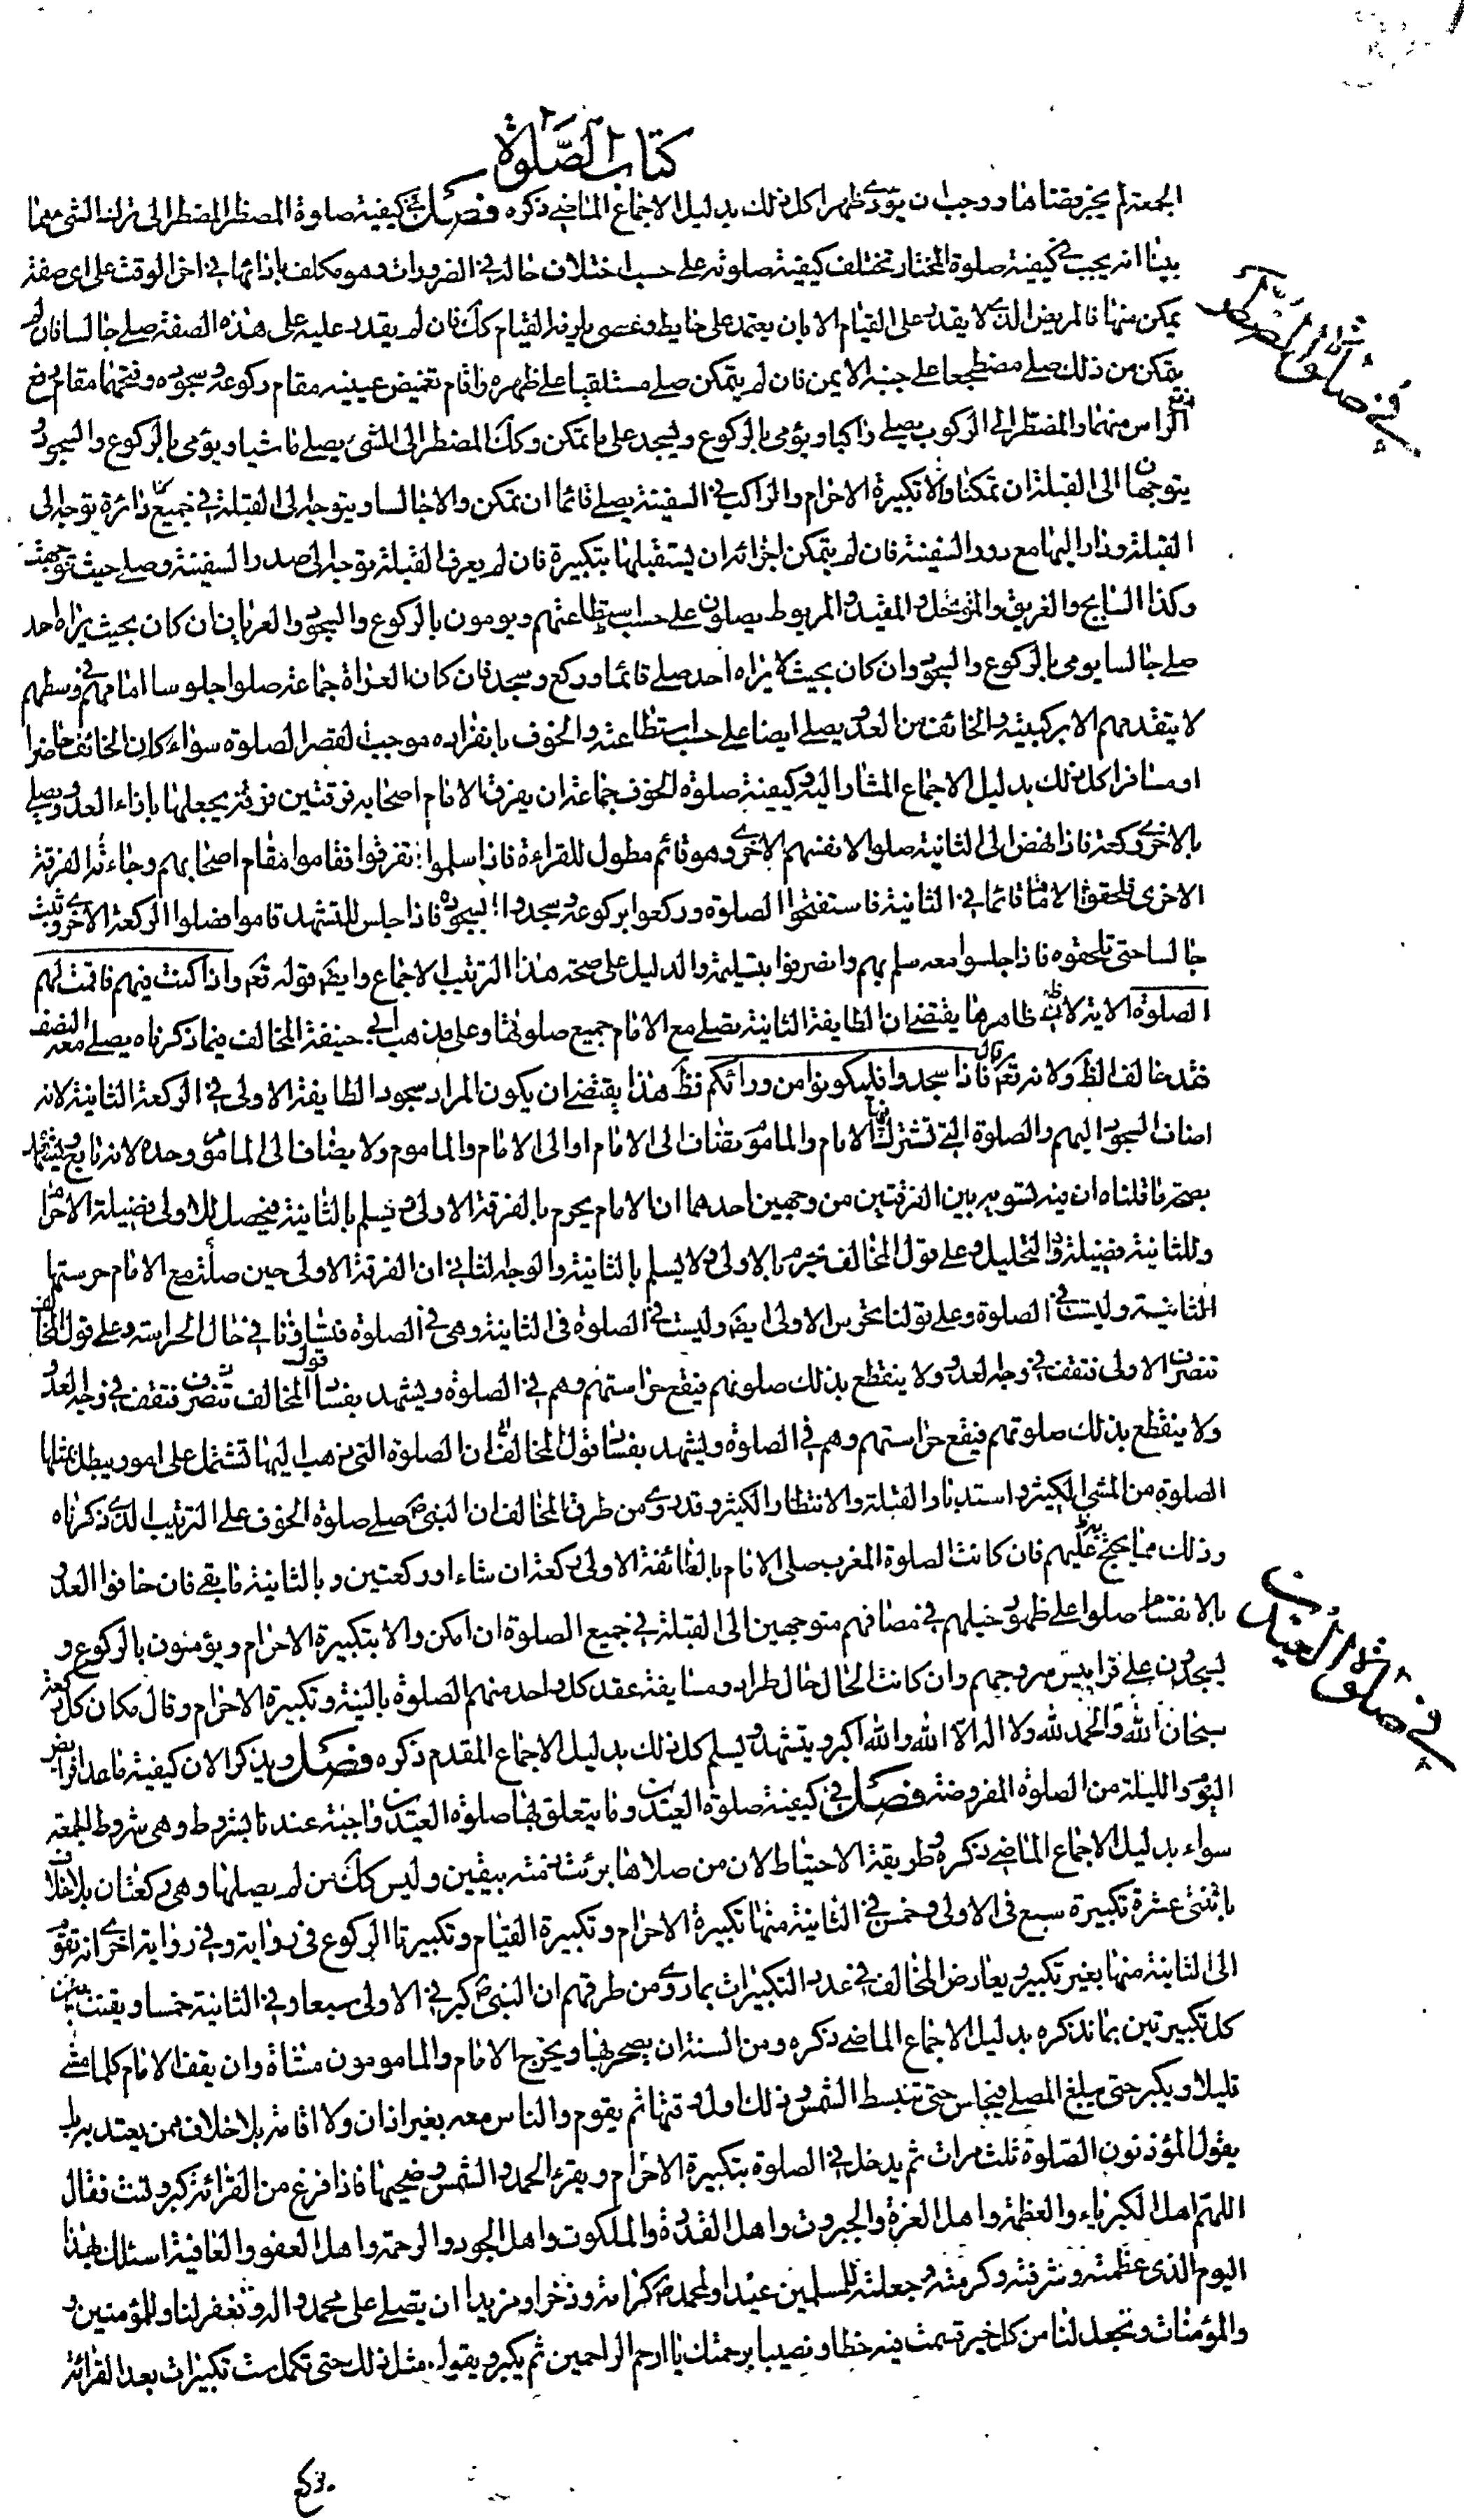 كتاب الصّلوة
الجمعة لم يجز قضاؤها ووجب ان يؤدى ظهرا كل ذلك بدليل الاجماع الماضي ذكره فصل في كيفية صلوة المضطر المضطر الى ترك الشئ مما
بينا انه يجب في كيفية صلوة المختار تختلف كيفية صلوته على حسب اختلاف حاله في الضرورات وهو مكلف باذائها في اخر الوقت على اى صفة
يمكن منها فالمريض الذى لا يقدر على القيام الا بان يعتمد على حايط وعصى يلزمه القيام كك فان لم يقدر عليه على هذه الصفة صلى جالسا فان لم
يتمكن من ذلك صلى مضطجعا على جنبه الايمن فان لم يتمكن صلى مستلقيا على ظهره واقام تغميض عينيه مقام ركوعه وسجوده وفتحهما مقام رفع
الراس منهما والمضطر الى الركوب يصلى راكبا ويؤمى بالركوع وليسجد على ما تمكن وكك المضطر الى المشى يصلى ماشيا ويؤمى بالركوع والسجود و
يتوجهان الى القبلة ان تمكنا والا تكبيرة الاحرام والراكب في السفينة يصلى قائما ان تمكن والا جالسا ويتوجه الى القبلة في جميع دائرة توجه الى
القبلة ودار اليها مع دور السفينة فان لم يتمكن اجزائه ان يستقبلها بتكبيرة فان لم يعرف القبلة توجه الى صدر السفينة وصلى حيث توجهت
وكذا السابح والغريق والمتوحل والمقيد والمربوط يصلون على حسب استطاعتهم ويومون بالركوع والسجود والعريان ان كان بحيث يراه احد
صلى جالسا يومى بالركوع والسجود وان كان بحيث لا يراه احد صلى قائما وركع وسجد فان كان العراة جماعة صلوا جلوسا امامهم في وسطهم
لا يتقدمهم الا بركبتيه والخائف من العدو يصلى ايضا على حسب استطاعته والخوف بانفراده موجب لقصر الصلوة سواء كان الخائف حاضرا
او مسافرا كل ذلك بدليل الاجماع المشار اليه وكيفية صلوة الخوف جماعة ان يفرق الامام اصحابه فرقتين فرقة يجعلها بازاء العدو ويصلى
بالاخرى ركعة فاذا نهض الى الثانية صلوا لانفسهم الاخرى وهو قائم مطول للقراءة فاذا سلموا تفرقوا فقاموا مقام اصحابهم وجاءت الفرقة
الاخرى فلحقوا الامام قائما في الثانية فاستفتحوا الصلوة وركعوا بركوعه وسجدوا بسجوده فاذا جلس للتشهد قاموا فصلوا الركعة الاخرى وثبت
جالسا حتى تلحقوه فاذا جلسوا معه سلم بهم وانصرفوا بتسليمه والدليل على صحة هذا الترتيب الاجماع وايضا قوله تعم واذا كنت فيهم فاقمت لهم
الصلوة الاية لان ظاهرها يقتضى ان الطايفة الثانية تصلى مع الامام جميع صلوتها وعلى مذهب ابى حنيفة المخالف فيما ذكرناه يصلى معه النصف
فقد خالف الظ ولانه تعم قال فاذا سجدوا فليكونوا من ورائكم فظ هذا يقتضى ان يكون المراد سجود الطايفة الاولى في الركعة الثانية لانه
اضاف السجود اليهم والصلوة التى تشترك فيها الامام والماموم تضاف الى الامام او الى الامام والماموم ولا يضاف الى الماموم وحده لانه تابع ويشهد
بصحة ما قلناه ان فيه تسوية بين الفرقتين من وجهين احدهما ان الامام يحرم بالفرقة الاولى ويسلم بالثانية فيحصل للاولى فضيلة الاحرام
وللثانية فضيلة التحليل وعلى قول المخالف يحرم بالاولى ولا يسلم بالثانية والوجه الثاني ان الفرقة الاولى حين صلت مع الامام حرستها
الثانية وليست في الصلوة وعلى قولنا تحرس الاولى ايضا وليست في الصلوة في الثانية وهى في الصلوة فتساوتا في حال الحراسة وعلى قول المخالف
تنصرف الاولى فتقف في وجه العدو ولا ينقطع بذلك صلوتهم فيقع حراستهم وهم في الصلوة ويشهد بفساد قول المخالف تنصرف فتقف في وجه العدو
ولا ينقطع بذلك صلوتهم فيقع حراستهم وهم في الصلوة ويشهد بفساد قول المخالف ان الصلوة التى ذهب اليها تشتمل على امور يبطل بمثلها
الصلوة من المشى الكثير واستدبار القبلة والانتظار الكثير وقد روى من طرق المخالف ان النبي ص صلى صلوة الخوف على الترتيب الذى ذكرناه
وذلك مما يحتج به عليهم فان كانت الصلوة المغرب صلى الامام بالطائفة الاولى ركعة ان شاء او ركعتين وبالثانية ما بقى فان خافوا العدو
بالانقسام صلوا على ظهور خيلهم في مصافهم متوجهين الى القبلة في جميع الصلوة ان امكن والا بتكبيرة الاحرام ويؤمنون بالركوع و
يسجدون على قرابيس سروجهم وان كانت الحال حال طراد ومسايفة عقد كل واحد منهم الصلوة بالنية وتكبيرة الاحرام وقال مكان كل ركعة
سبحان الله والحمد لله ولا اله الّا الله والله اكبر ويتشهد ويسلم كل ذلك بدليل الاجماع المقدم ذكره فصل ويذكر الان كيفية ماعدا فرايض
اليوم والليلة من الصلوة المفروضة فصل في كيفية صلوة العيدين وما يتعلق بها صلوة العيدين واجبة عندنا بشروط وهى شروط الجمعة
سواء بدليل الاجماع الماضي ذكره وطريقة الاحتياط لان من صلاها برئت ذمته بيقين وليس كك من لم يصلها وهى ركعتان بلا خلاف
باثنتى عشرة تكبيرة سبع في الاولى وخمس في الثانية منها تكبيرة الاحرام وتكبيرة القيام وتكبيرتا الركوع في رواية وفي رواية اخرى انه يقوم
الى الثانية منها بغير تكبير ويعارض المخالف في عدد التكبيرات بما روى من طرقهم ان النبي ص كبر في الاولى سبعا وفي الثانية خمسا ويقنت بين
كل تكبيرتين بما نذكره بدليل الاجماع الماضي ذكره ومن السنة ان يصحر بها ويخرج الامام والمامومون مشاة وان يقف الامام كلما مشى
قليلا ويكبر حتى يبلغ المصلى فيجلس حتى تنبسط الشمس ذلك اول وقتها ثم يقوم والناس معه بغير اذان ولا اقامة بلا خلاف ممن يعتد به بل
يقول المؤذنون الصّلوة ثلث مرات ثم يدخل في الصلوة بتكبيرة الاحرام ويقرء الحمد والشمس وضحيها فاذا فرغ من القرائة كبر وقنت فقال
اللهم اهل الكبرياء والعظمة واهل العزة والجبروت واهل القدرة والملكوت واهل الجود والرحمة واهل العفو والعافية اسئلك بهذا
اليوم الذى عظمته وشرفته وكرمته وجعلته للمسلمين عيدا ولمحمد ص كرامة وذخرا ومزيدا ان يصلى على محمد واله وتغفر لنا وللمؤمنين و
والمؤمنات وتجعل لنا من كل خير قسمت فيه حظا ونصيبا برحمتك يا ارحم الراحمين ثم يكبر ويقول مثل ذلك حتى تكمل ست تكبيرات بعد القرائة
في صلوة المضطر
في صلوة العيدين